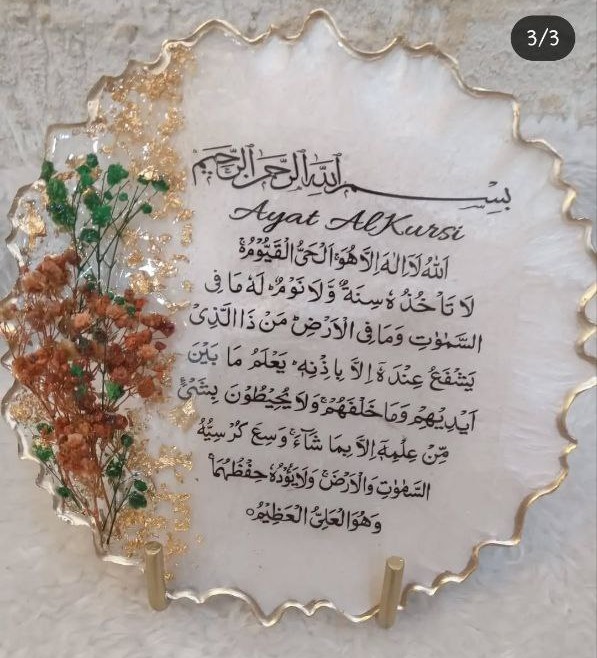 3/3
بِسْمِ اللهِ الرَّحْمٰنِ الرَّحِيْمِ
Ayat AlKursi
اَللهُ لَآ اِلٰهَ اِلَّا هُوَ ۚ اَلْحَىُّ الْقَيُّوْمُ ۚ
لَا تَاْخُذُهٗ سِنَةٌ وَّلَا نَوْمٌ ؕ لَهٗ مَا فِى
السَّمٰوٰتِ وَمَا فِى الْاَرْضِ ؕ مَنْ ذَا الَّذِىْ
يَشْفَعُ عِنْدَهٗٓ اِلَّا بِاِذْنِهٖ ؕ يَعْلَمُ مَا بَيْنَ
اَيْدِيْهِمْ وَمَا خَلْفَهُمْ ۚ وَلَا يُحِيْطُوْنَ بِشَىْءٍ
مِّنْ عِلْمِهٖٓ اِلَّا بِمَا شَآءَ ۚ وَسِعَ كُرْسِيُّهُ
السَّمٰوٰتِ وَالْاَرْضَ ۚ وَلَا يَئُوْدُهٗ حِفْظُهُمَا ۚ
وَهُوَ الْعَلِىُّ الْعَظِيْمُ ○